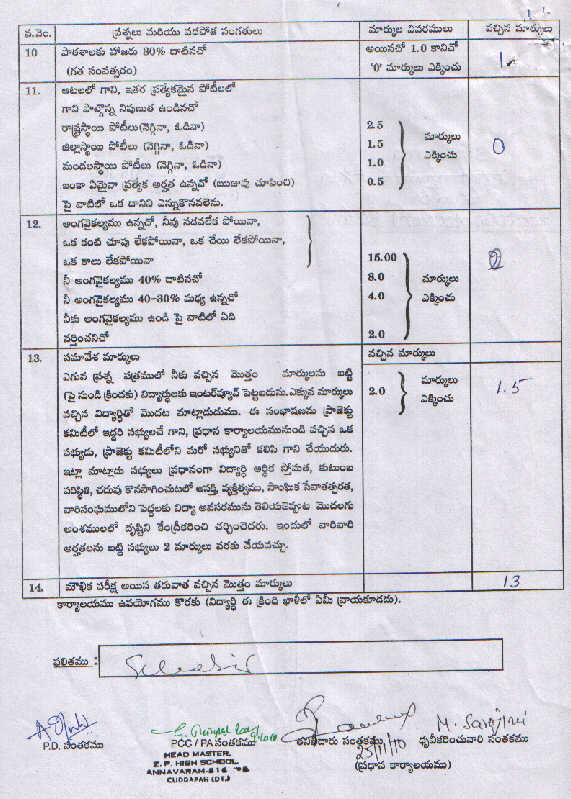 వ.నెం. ప్రశ్నలు మరియు పరిశోధక సంగతులు మార్కుల వివరములు వచ్చిన మార్కులు
10 పాఠశాలకు హాజరు 80% దాటినచో అయినచో 1.0 కానిచో 1
(గత సంవత్సరం) '0' మార్కులు ఎక్కించు
11. ఆటలలో గాని, ఇతర ప్రత్యేకమైన పోటీలలో
గాని పాల్గొన్న నిపుణత ఉండినచో
రాష్ట్రస్థాయి పోటీలు(నెగ్గినా, ఓడినా) 2.5 మార్కులు 0
జిల్లాస్థాయి పోటీలు (నెగ్గినా, ఓడినా) 1.5 ఎక్కించు
మండలస్థాయి పోటీలు (నెగ్గినా, ఓడినా) 1.0
ఇంకా ఏమైనా ప్రత్యేక అర్హత ఉన్నచో (ఋజువు చూపించి) 0.5
పై వాటిలో ఒక దానిని ఎన్నుకొనవలెను.
12. అంగవైకల్యము ఉన్నచో, నీవు నడవలేక పోయినా,
ఒక కంటి చూపు లేకపోయినా, ఒక చేయి లేకపోయినా,
ఒక కాలు లేకపోయినా 15.00 0
నీ అంగవైకల్యము 40% దాటినచో 8.0 మార్కులు
నీ అంగవైకల్యము 40-30% మధ్య ఉన్నచో 4.0 ఎక్కించు
నీకు అంగవైకల్యము ఉండి పై వాటిలో ఏది
వర్తించనిచో 2.0
13. సమావేశ మార్కులు వచ్చిన మార్కులు
ఎగువ ప్రశ్న పత్రములో నీకు వచ్చిన మొత్తం మార్కులను బట్టి మార్కులు
(పై నుండి క్రిందకు) విద్యార్థులకు ఇంటర్వ్యూన్ పెట్టబడును. ఎక్కువ మార్కులు 2.0 ఎక్కించు 1.5
వచ్చిన విద్యార్థితో మొదట మాట్లాడుదుము. ఈ సంభాషణను ప్రాజెక్టు
కమిటీలో ఇద్దరి సభ్యులచే గాని, ప్రధాన కార్యాలయమునుండి వచ్చిన ఒక
సభ్యుడు, ప్రాజెక్టు కమిటీలోని మరో సభ్యునితో కలిసి గాని చేయుదురు.
ఇట్లా మాట్లాడు సభ్యులు ప్రధానంగా విద్యార్థి ఆర్థిక స్తోమత, కుటుంబ
పరిస్థితి, చదువు కొనసాగించుటలో ఆసక్తి, వ్యక్తిత్వము, సాంఘిక సేవాతత్పరత,
వారిసంఘములోని పెద్దలకు విద్యా అవసరమును తెలియచెప్పుట మొదలగు
అంశములలో దృష్టిని కేంద్రీకరించి చర్చించెదరు. ఇందులో వారివారి
అర్హతలను బట్టి సభ్యులు 2 మార్కులు వరకు వేయవచ్చు.
14. మౌఖిక పరీక్ష అయిన తరువాత వచ్చిన మొత్తం మార్కులు 13
కార్యాలయము ఉపయోగము కొరకు (విద్యార్థి ఈ క్రింది ఖాళీలో ఏమీ వ్రాయకూడదు).
ఫలితము :
P.D. సంతకము PCC / PA సంతకము సంతకము ధృవీకరించువారి సంతకము
HEAD MASTER, 25/11/10
Z. P. HIGH SCHOOL, (ప్రధాన కార్యాలయము)
ANNAVARAM-516
CUDDAPAH (DT.)